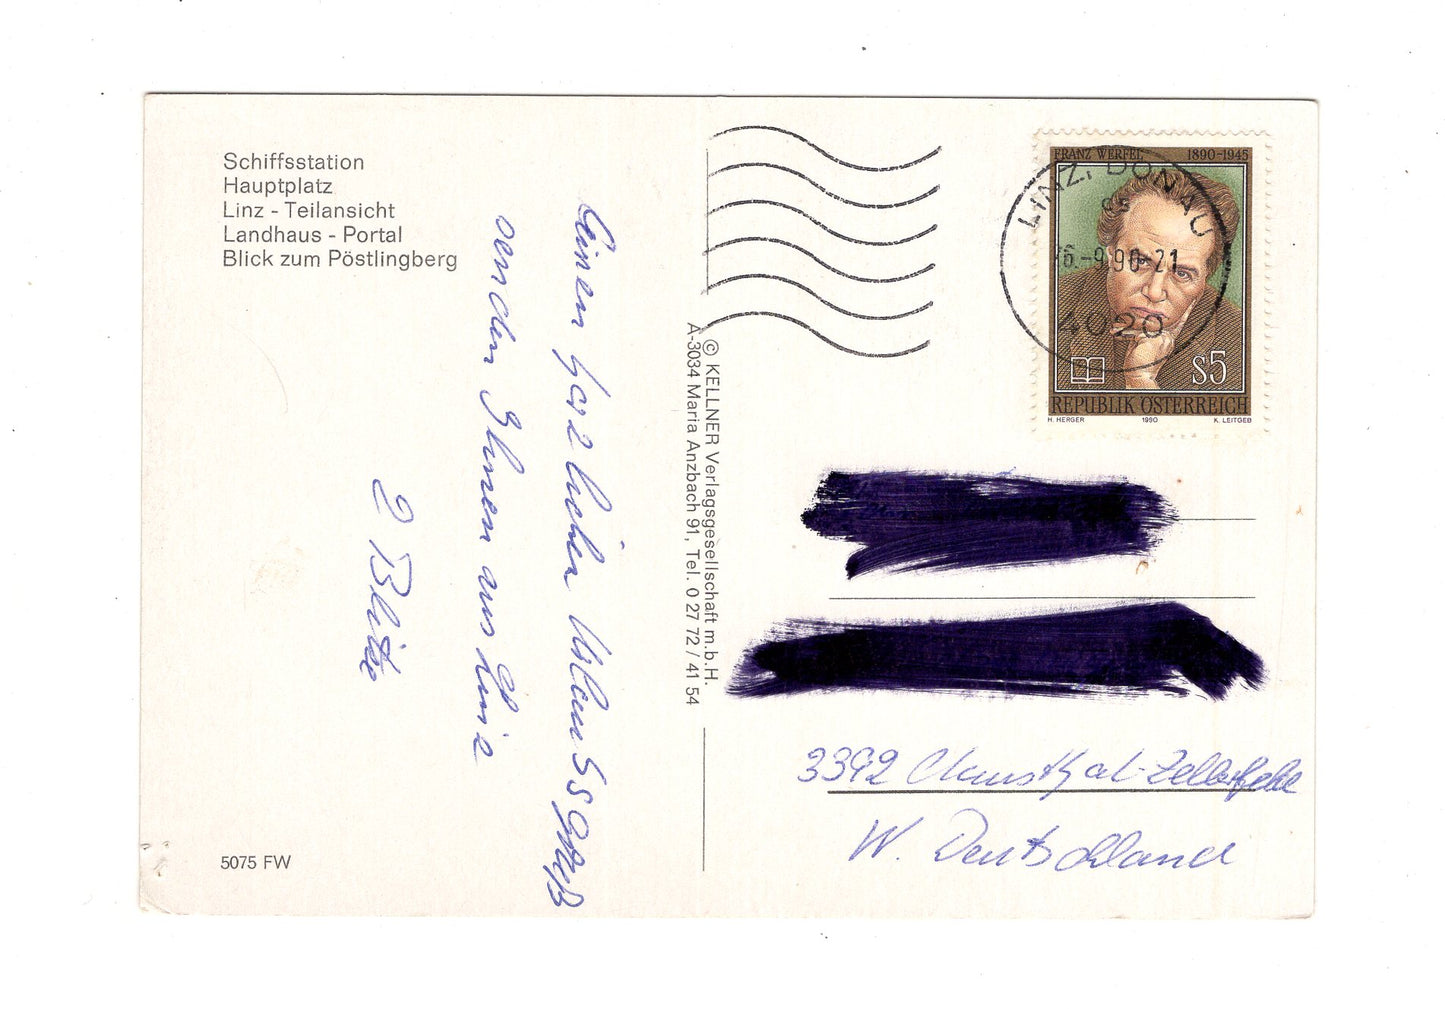 Schiffsstation
Hauptplatz
Linz - Teilansicht
Landhaus - Portal
Blick zum Pöstlingberg
Einen herzlichen Urlaubsgruß
senden Ihnen aus Linz
2
5075 FW
© KELLNER Verlagsgesellschaft m.b.H.
A-3034 Maria Anzbach 91, Tel. 0 27 72 / 41 54
FRANZ WERFEL 1890-1945
LINZ, DONAU
6.-9.90-21
4020
S5
REPUBLIK ÖSTERREICH
H. HERGER 1990 K. LEITGEB
3392 Clausthal-Zellerfeld
W. Deutschland